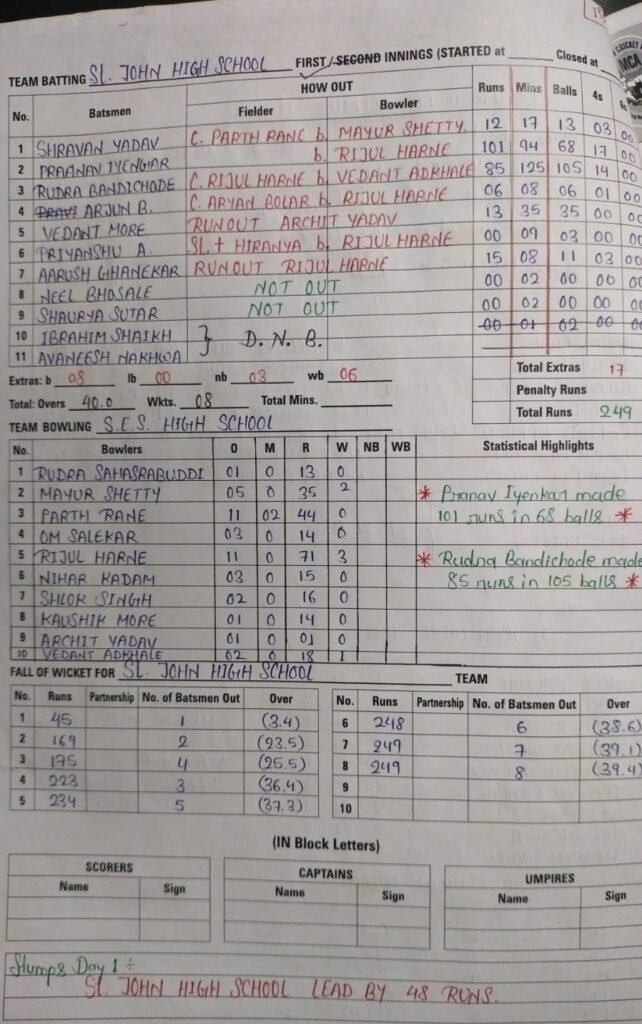 13
CRICKET A
MCA
TEAM BATTING St. JOHN HIGH SCHOOL FIRST/SECOND INNINGS (STARTED at ____ Closed at ____
No. Batsmen HOW OUT Fielder Bowler Runs Mins Balls 4s 6s
1 SHRAVAN YADAV C. PARTH RANE b. MAYUR SHETTY. 12 17 13 03 00
2 PRAANAV IYENGAR b. RIJUL HARNE 101 94 68 17 00
3 RUDRA BANDICHODE C. RIJUL HARNE b. VEDANT ADKHALE 85 125 105 14 00
4 ARJUN B. C. ARYAN BOLAR b. RIJUL HARNE 06 08 06 01 00
5 VEDANT MORE RUNOUT ARCHIT YADAV 13 35 35 00 00
6 PRIYANSHU A. St. + HIRANYA b. RIJUL HARNE 00 09 03 00 00
7 AARUSH GHANEKAR RUNOUT RIJUL HARNE 15 08 11 03 00
8 NEEL BHOSALE NOT OUT 00 02 00 00 00
9 SHAURYA SUTAR NOT OUT 00 02 00 00 00
10 IBRAHIM SHAIKH } D. N. B. 00 01 02 00 00
11 AVANEESH NAKHWA
Extras: b 08 lb 00 nb 03 wb 06 Total Extras 17
Penalty Runs
Total: Overs 40.0 Wkts. 08 Total Mins. ____ Total Runs 249
TEAM BOWLING S.E.S. HIGH SCHOOL
No. Bowlers O M R W NB WB Statistical Highlights
1 RUDRA SAHASRABUDDI 01 0 13 0
2 MAYUR SHETTY 05 0 35 2 * Pranav Iyenkar made
3 PARTH RANE 11 02 44 0 101 runs in 68 balls *
4 OM SALEKAR 03 0 14 0
5 RIJUL HARNE 11 0 71 3 * Rudra Bandichode made
6 NIHAR KADAM 03 0 15 0 85 runs in 105 balls *
7 SHLOK SINGH 02 0 16 0
8 KAUSHIK MORE 01 0 14 0
9 ARCHIT YADAV 01 0 01 0
10 VEDANT ADKHALE 02 0 18 1
FALL OF WICKET FOR St. JOHN HIGH SCHOOL TEAM
No. Runs Partnership No. of Batsmen Out Over No. Runs Partnership No. of Batsmen Out Over
1 45 1 (3.4) 6 248 6 (38.6)
2 169 2 (23.5) 7 249 7 (39.1)
3 175 4 (25.5) 8 249 8 (39.4)
4 223 3 (36.4) 9
5 234 5 (37.3) 10
(IN Block Letters)
SCORERS CAPTAINS UMPIRES
Name Sign Name Sign Name Sign
Stumps Day 1 ÷
St. JOHN HIGH SCHOOL LEAD BY 48 RUNS.